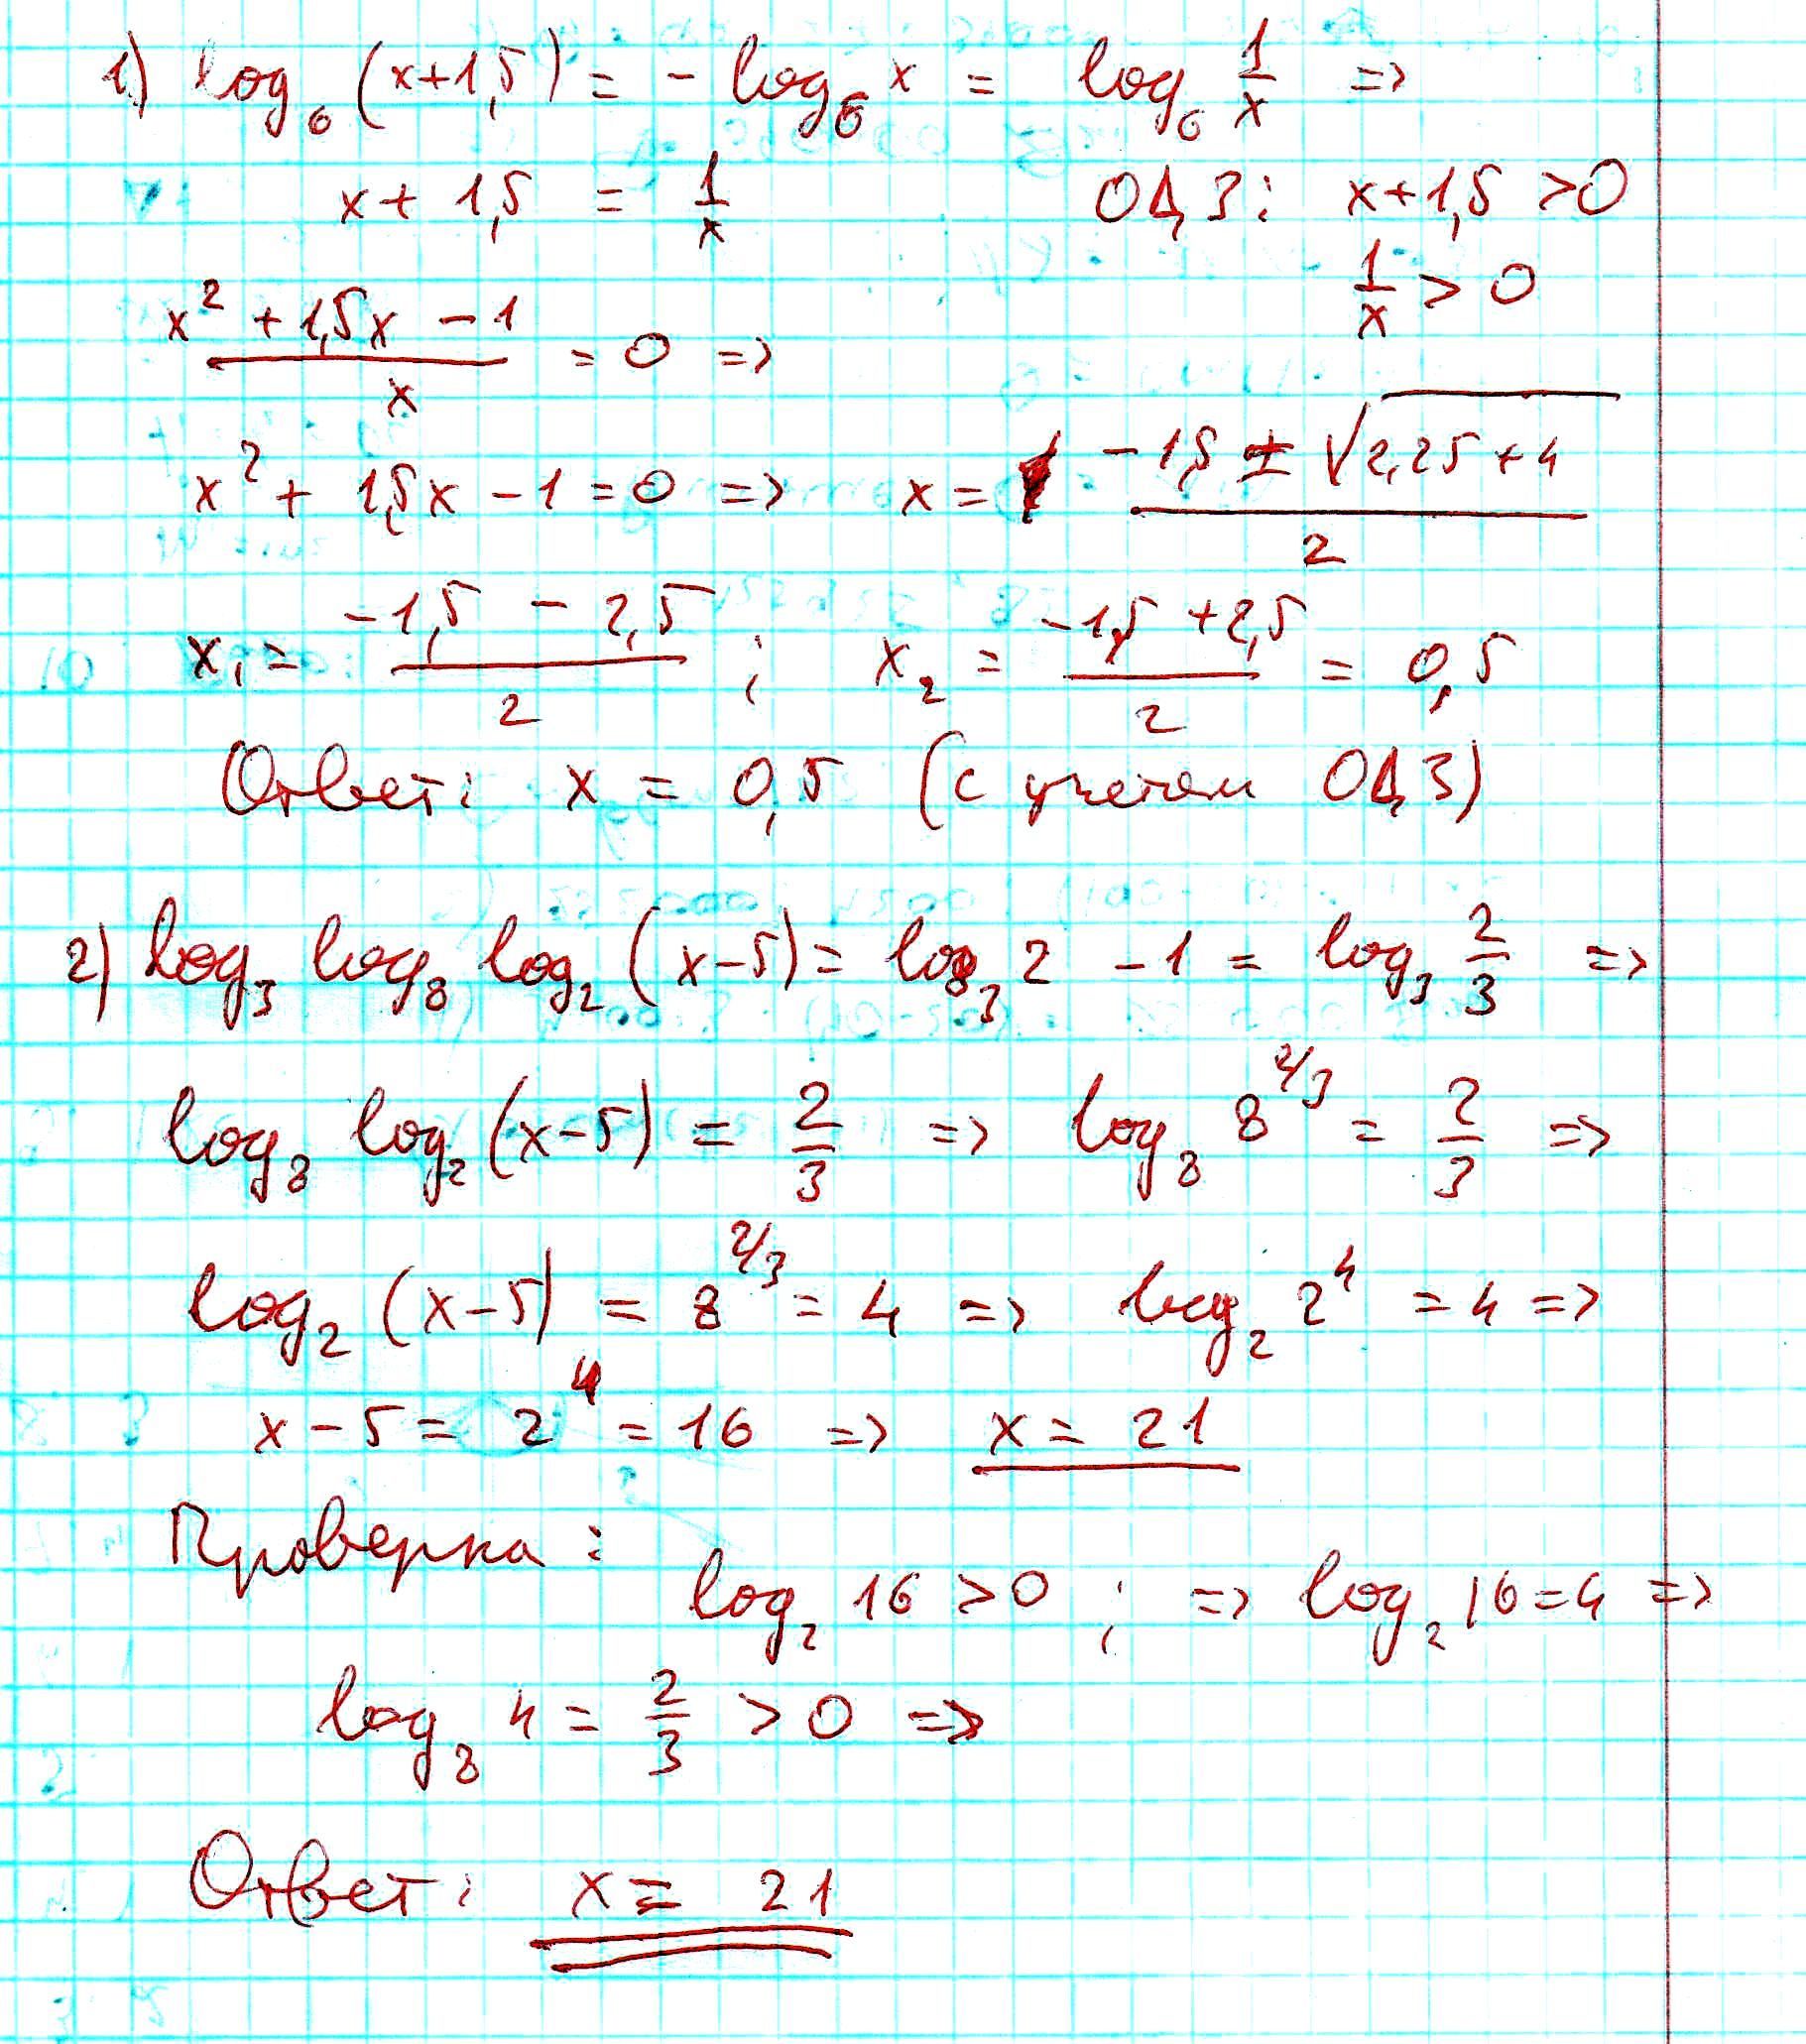 1) log₆ (x+1,5) = - log₆ x = log₆ 1/x =>
x + 1,5 = 1/x ОДЗ: x+1,5 >0
1/x > 0
(x² + 1,5x - 1)/x = 0 =>
x² + 1,5x - 1 = 0 => x = (-1,5 ± √(2,25 + 4))/2
x₁ = (-1,5 - 2,5)/2 ; x₂ = (-1,5 + 2,5)/2 = 0,5
Ответ: x = 0,5 (с учетом ОДЗ)
2) log₃ log₈ log₂ (x-5) = log₃ 2 - 1 = log₃ 2/3 =>
log₈ log₂ (x-5) = 2/3 => log₈ 8^(2/3) = 2/3 =>
log₂ (x-5) = 8^(2/3) = 4 => log₂ 2⁴ = 4 =>
x - 5 = 2⁴ = 16 => x = 21
Проверка:
log₂ 16 > 0 ; => log₂ 16 = 4 =>
log₈ 4 = 2/3 > 0 =>
Ответ: x = 21